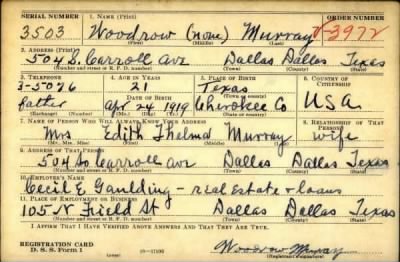 SERIAL NUMBER 1. NAME (Print) ORDER NUMBER
3503 Woodrow (none) Murray 3972
(First) (Middle) (Last)
2. ADDRESS (Print)
504 S. Carroll Ave Dallas Dallas Texas
(Number and street or R. F. D. number) (Town) (County) (State)
3. TELEPHONE 4. AGE IN YEARS 5. PLACE OF BIRTH 6. COUNTRY OF CITIZENSHIP
3-5076 21 Texas
DATE OF BIRTH (Town or county)
father Apr 24 1919 Cherokee Co USA
(Exchange) (Number) (Mo.) (Day) (Yr.) (State or country)
7. NAME OF PERSON WHO WILL ALWAYS KNOW YOUR ADDRESS 8. RELATIONSHIP OF THAT PERSON
Mrs Edith Thelma Murray wife
(Mr., Mrs., Miss) (First) (Middle) (Last)
9. ADDRESS OF THAT PERSON
504 So Carroll ave Dallas Dallas Texas
(Number and street or R. F. D. number) (Town) (County) (State)
10. EMPLOYER'S NAME
Cecil E Gaulding - real estate & loans
11. PLACE OF EMPLOYMENT OR BUSINESS
105 N Field St Dallas Dallas Texas
(Number and street or R. F. D. number) (Town) (County) (State)
I AFFIRM THAT I HAVE VERIFIED ABOVE ANSWERS AND THAT THEY ARE TRUE.
REGISTRATION CARD
D. S. S. Form 1
Woodrow Murray
(Registrant's signature)